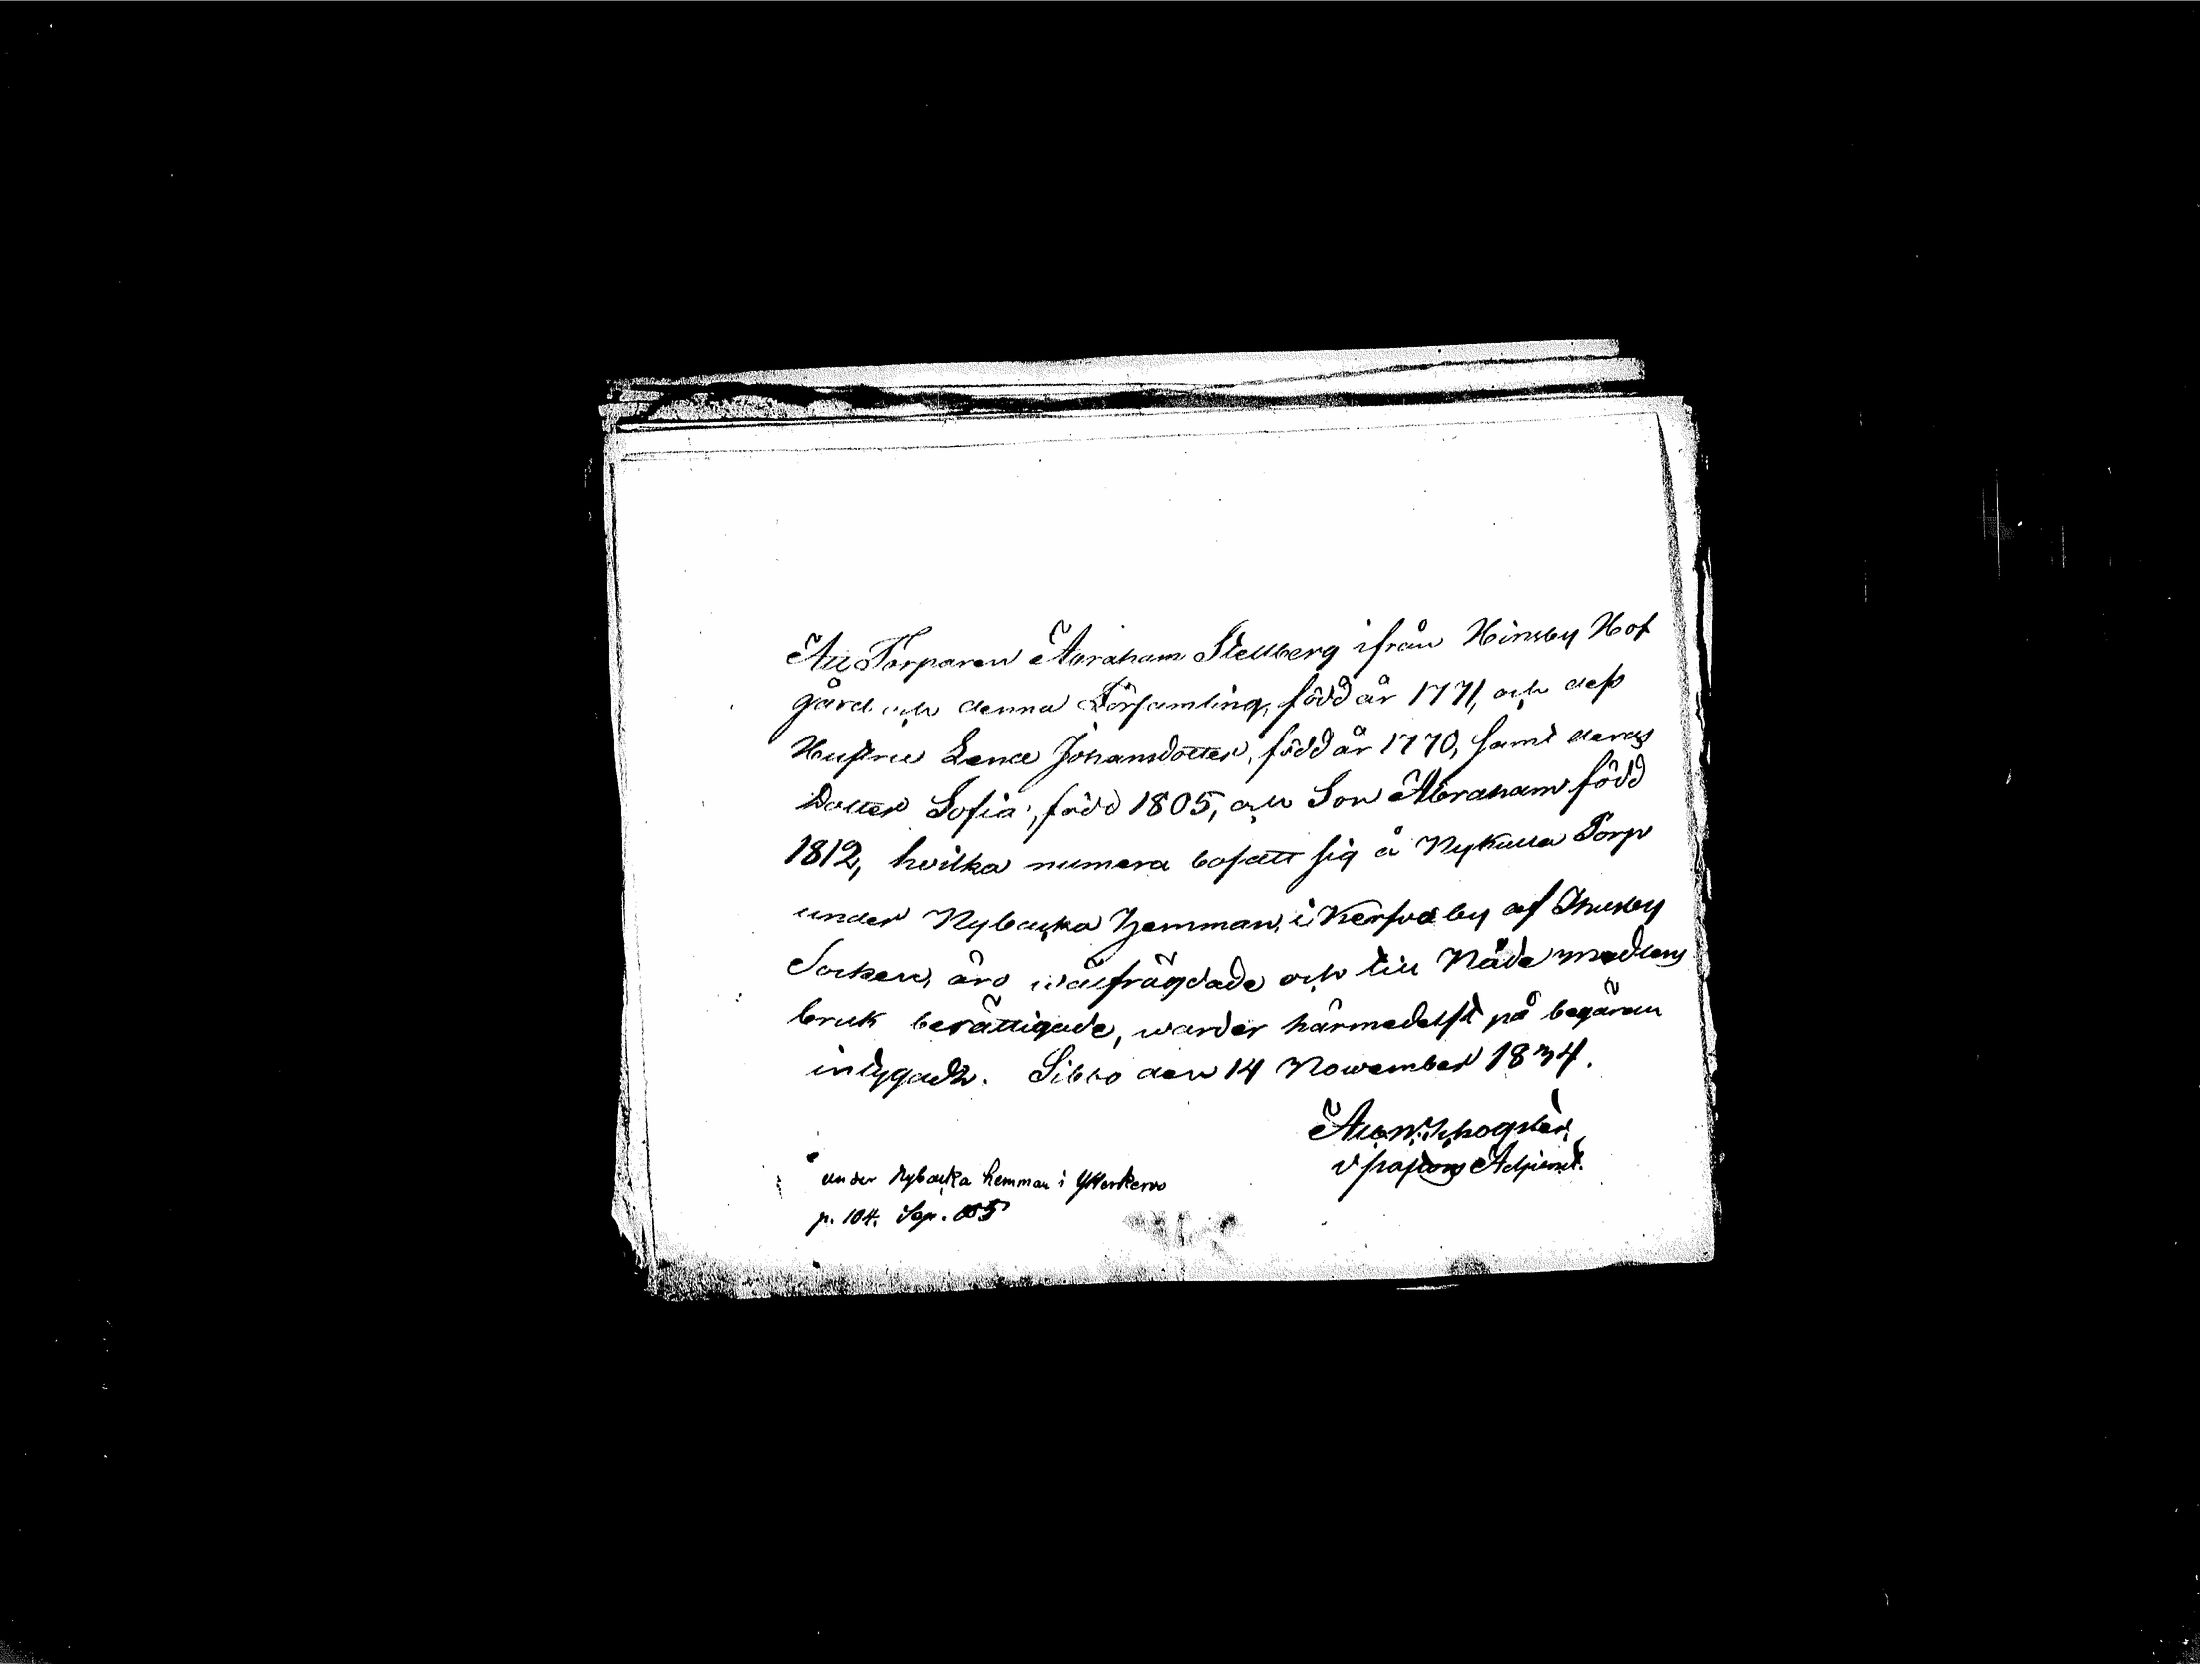 Att Torparen Abraham Stellberg ifrån Hinsby Hof
gård och denna Församling, född år 1771, och dess
Hustru Lena Johansdotter, född år 1770, samt deras
Dotter Sofia, född 1805, och Son Abraham född
1812, hvilka numera bosatt sig å Nykulla Torp
under Nybacka Hemman, i Kerfvo by af Thusby
Socken, äro välfrägdade och till Nåde medlens
bruk berättigade, warder härmedelst på begäran
intygadt. Sibbo den 14 November 1834.
v pastors Adjunct.
under Nybacka hemman i Ytterkervo
p. 104. Sep. 835